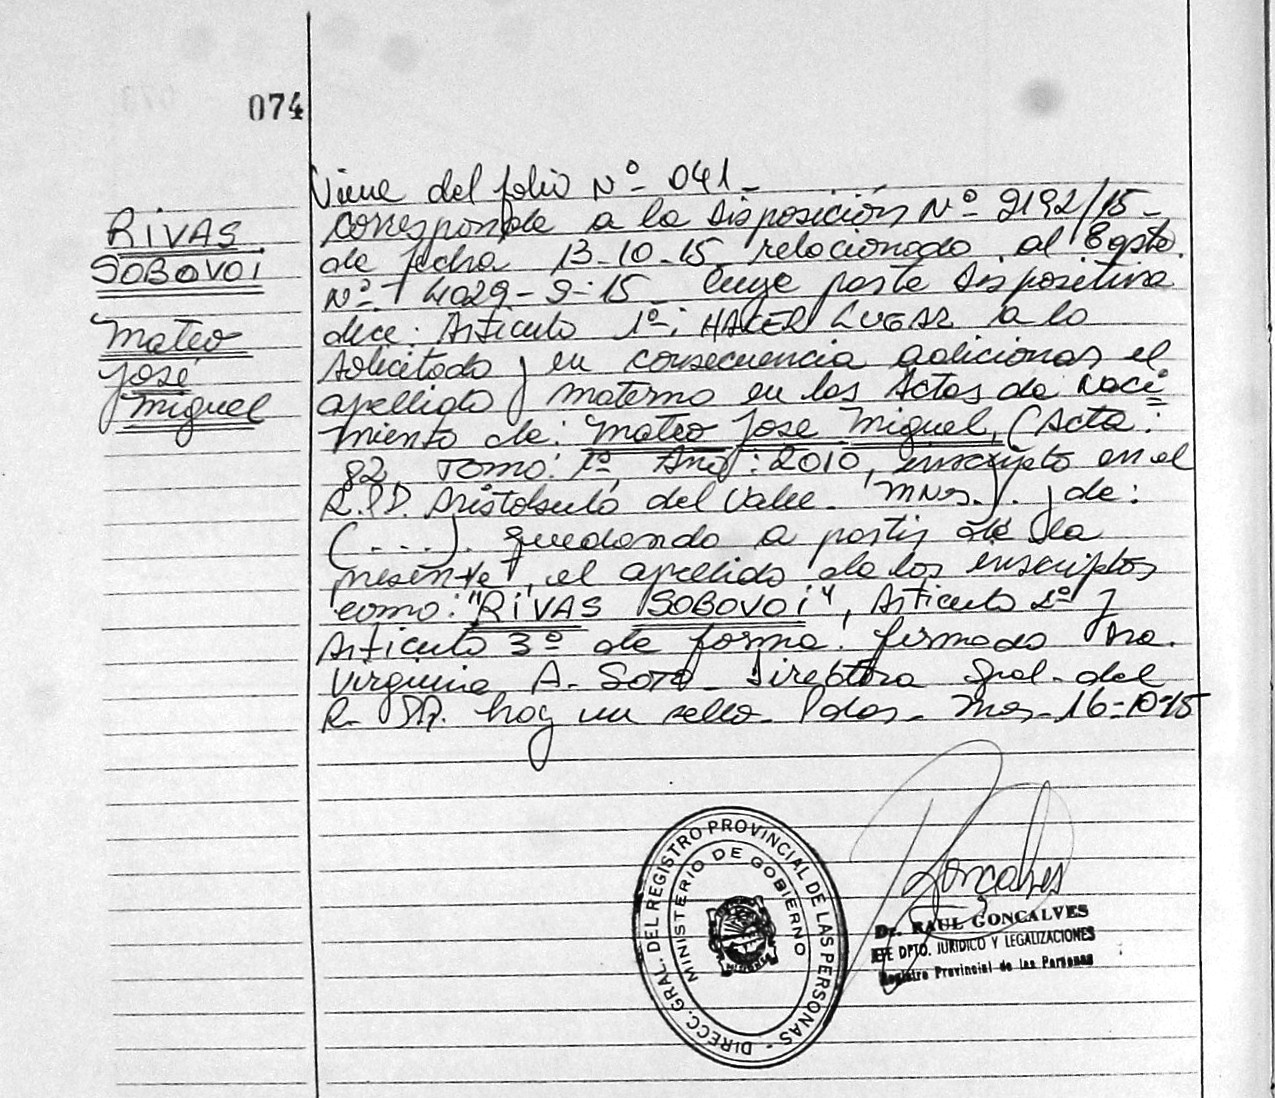 074
RIVAS
SOBOVOI
Mateo
José
Miguel
Viene del folio Nº 041-
corresponde a la Disposición Nº 2192/15-
de fecha 13-10-15 relacionado al Expte.
Nº 4029-9-15- Cuya parte Dispositiva
dice: Artículo 1º: HACER LUGAR a lo
solicitado y en consecuencia adicionar el
apellido materno en las Actas de Naci
miento de: Mateo José Miguel, (Acta:
82, Tomo: 1º, Año: 2010, inscripto en el
R.P.P. Aristóbulo del Valle. Mnes.). y de:
(....). quedando a partir de la
presente, el apellido de los inscriptos
como: "RIVAS SOBOVOI", Artículo 2º y
Artículo 3º de forma. firmado Dra.
Virginia A. Soto Directora Gral. del
R. P.P. hay un sello. Pdas. Mnes. 16-10-15
DIRECC. GRAL. DEL REGISTRO PROVINCIAL DE LAS PERSONAS -
MINISTERIO DE GOBIERNO
MISIONES
Goncalves
Dr. RAUL GONCALVES
JEFE DPTO. JURIDICO Y LEGALIZACIONES
Registro Provincial de las Personas